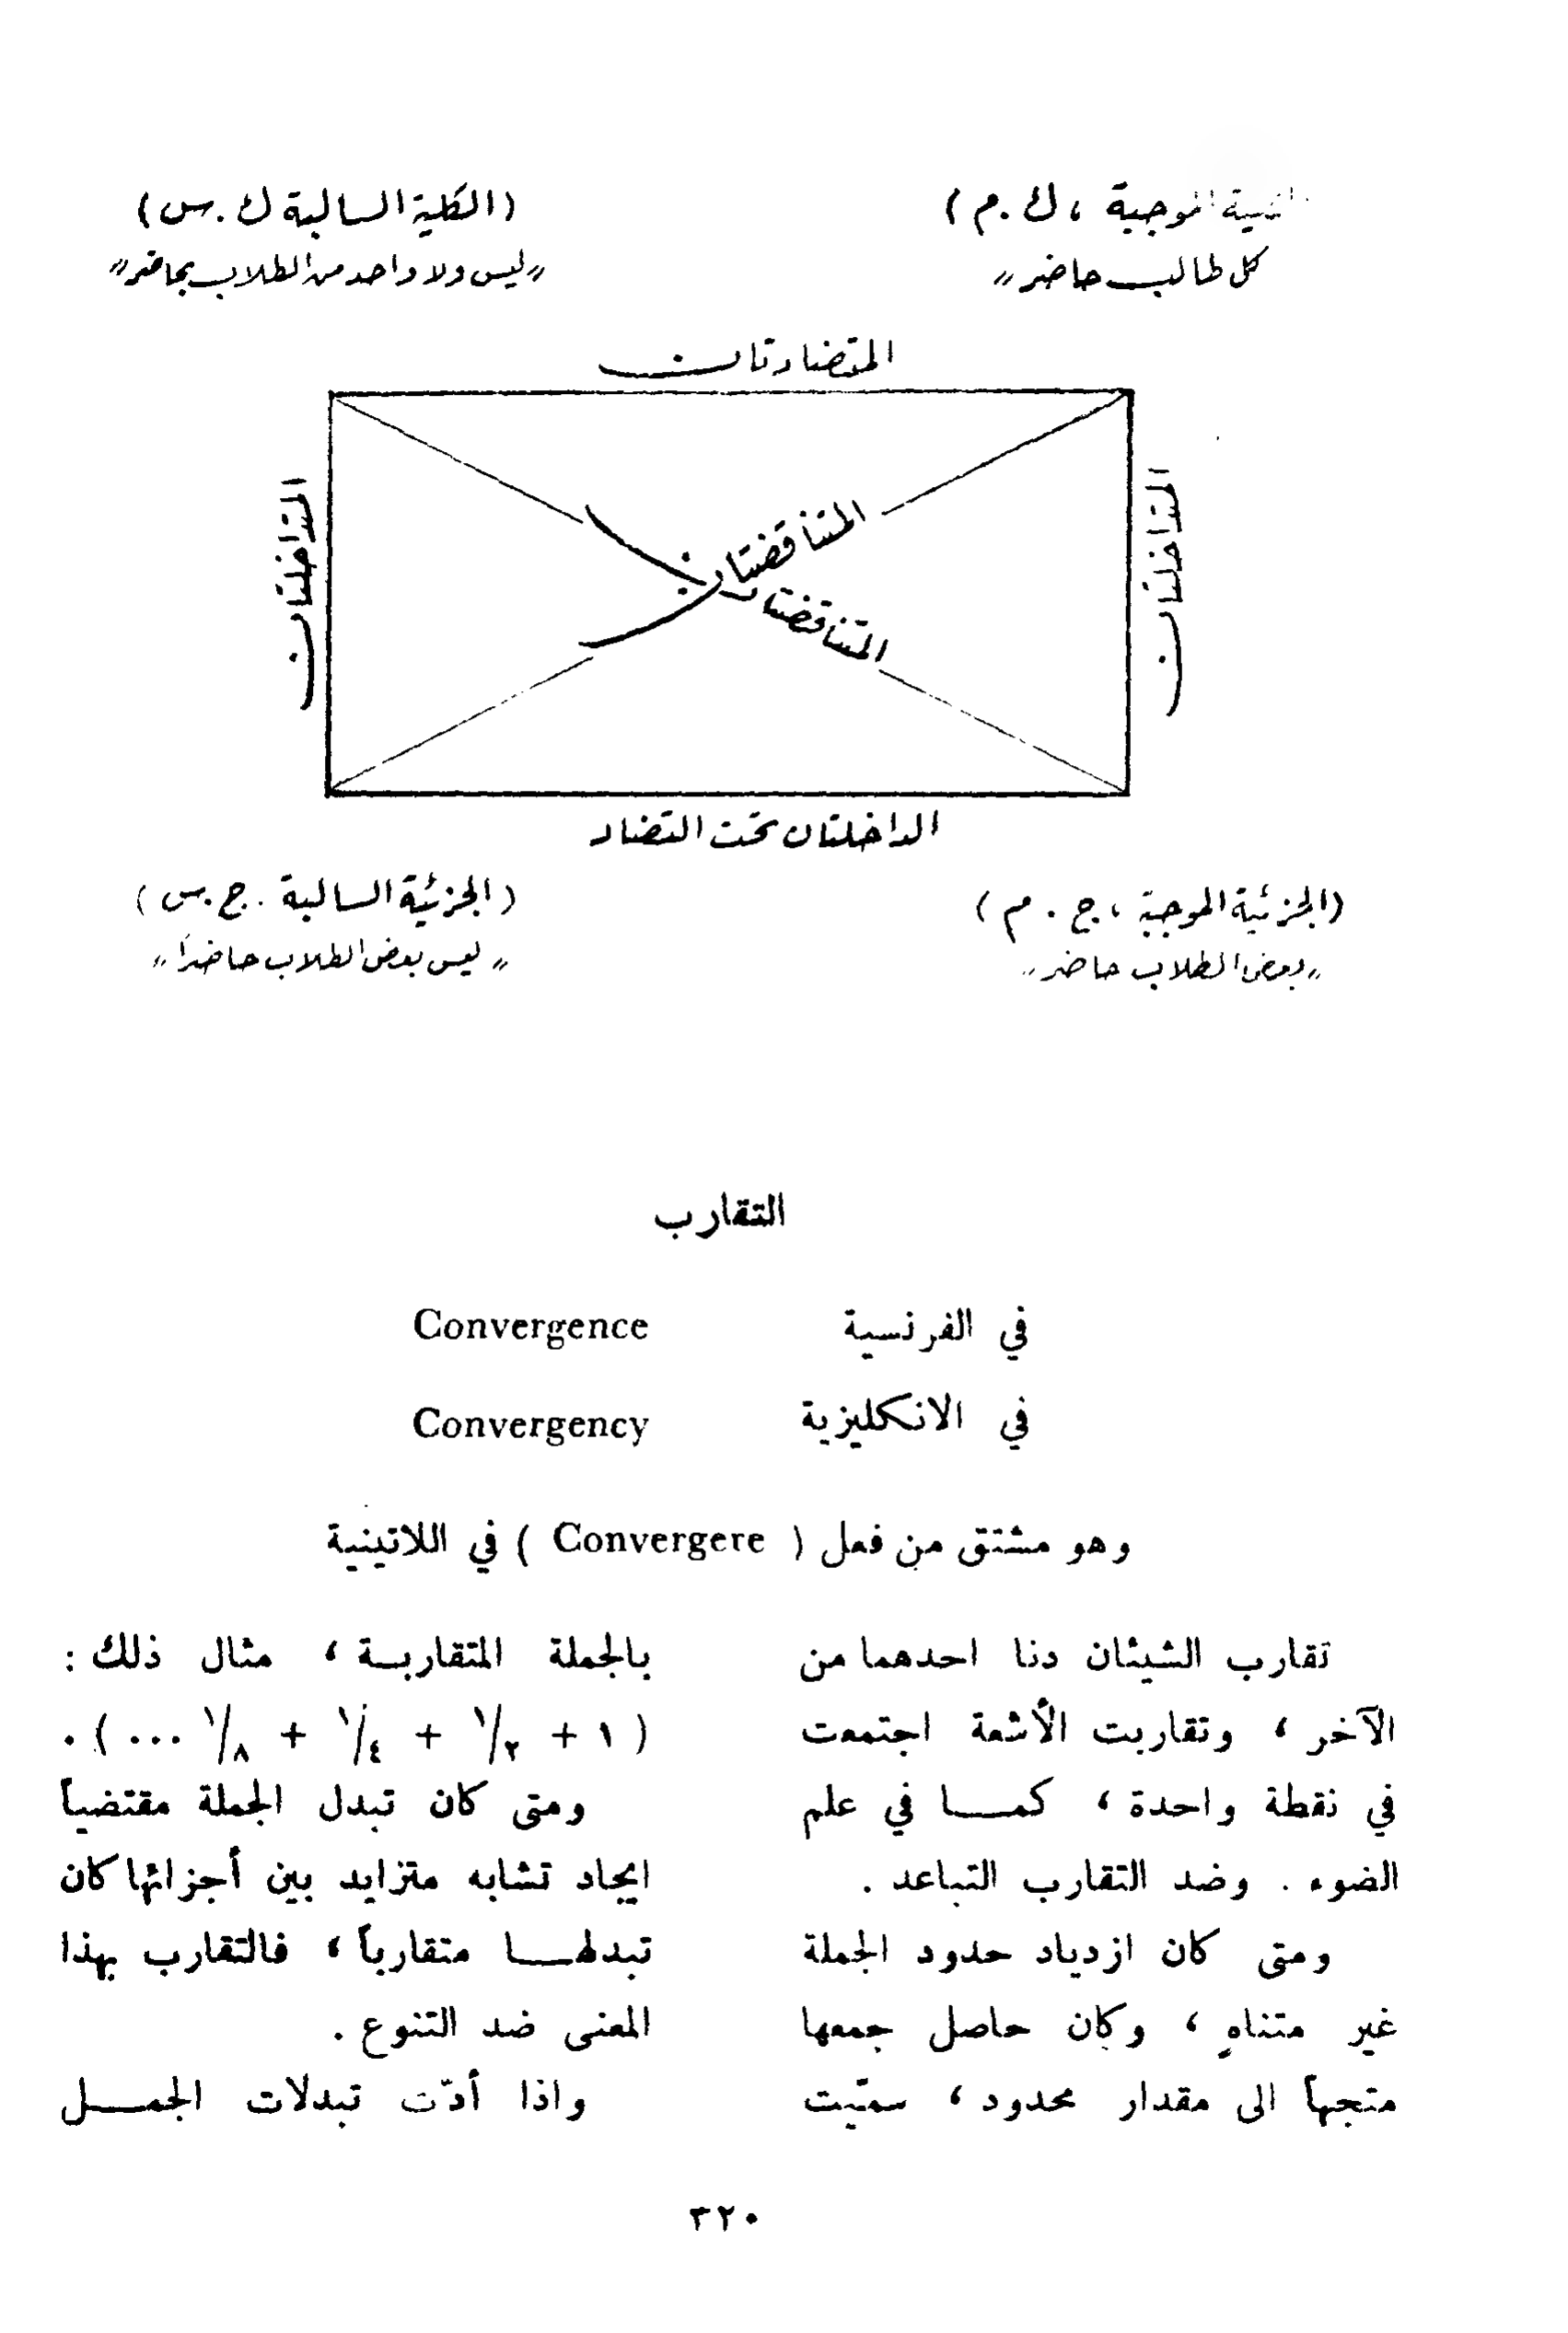 الموجبة ، ك . م )
كل طالب حاضر »
( الكلية السالبة ك . س )
« ليس ولا واحد من الطلاب بحاضر »
المتضادتان
المتداخلتان
المتناقضتان
المتناقضتان
المتداخلتان
الداخلتان تحت التضاد
( الجزئية الموجبة ، ج . م )
« بعض الطلاب حاضر »
( الجزئية السالبة . ج . س )
« ليس بعض الطلاب حاضراً »
التقارب
في الفرنسية Convergence
في الانكليزية Convergency
وهو مشتق من فعل ( Convergere ) في اللاتينية
تقارب الشيئان دنا احدهما من
الآخر ، وتقاربت الأشعة اجتمعت
في نقطة واحدة ، كمــا في علم
الضوء . وضد التقارب التباعد .
ومتى كان ازدياد حدود الجملة
غير متناهٍ ، وكان حاصل جمعها
متجهاً الى مقدار محدود ، سمّيت
بالجملة المتقاربــة ، مثال ذلك :
( ١ + ١/٢ + ١/٤ + ١/٨ ... ) .
ومتى كان تبدل الجملة مقتضياً
ايجاد تشابه متزايد بين أجزائها كان
تبدلهــا متقارباً ، فالتقارب بهذا
المعنى ضد التنوع .
واذا أدّت تبدلات الجمــل
٣٢٠